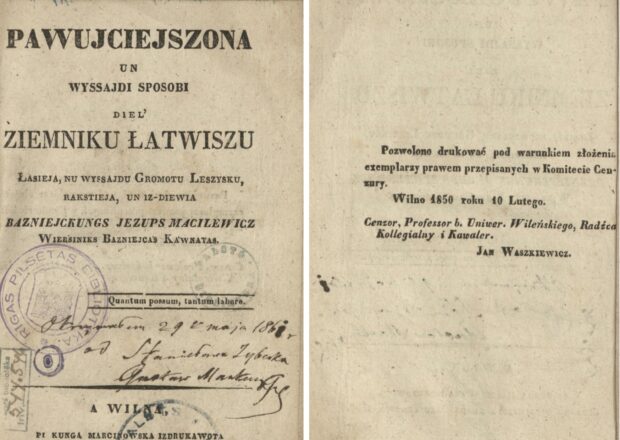 PAWUJCIEJSZONA
UN
WYSSAJDI SPOSOBI
DIEL'
ZIEMNIKU ŁATWISZU
ŁASIEJA, NU WYSSAJDU GROMOTU LESZYSKU,
RAKSTIEJA, UN IZ-DIEWIA
BAZNIEJCKUNGS JEZUPS MACILEWICZ
WIERSINIKS BAZNIEJCAS KAWNATAS.
RIGAS PILSĒTAS BIBLIOTĒKA
Quantum possum, tantum labore.
Otrzymałem 29 maja 186
od Stanisława
Gustaw
A WILNĄ,
PI KUNGA MARCINOWSKA IZDRUKAWOTA
Pozwolono drukować pod warunkiem złożenia
exemplarzy prawem przepisanych w Komitecie Cen-
zury.
Wilno 1850 roku 10 Lutego.
Cenzor, Professor b. Uniwer. Wileńskiego, Radźca
Kollegialny i Kawaler.
JAN WASZKIEWICZ.